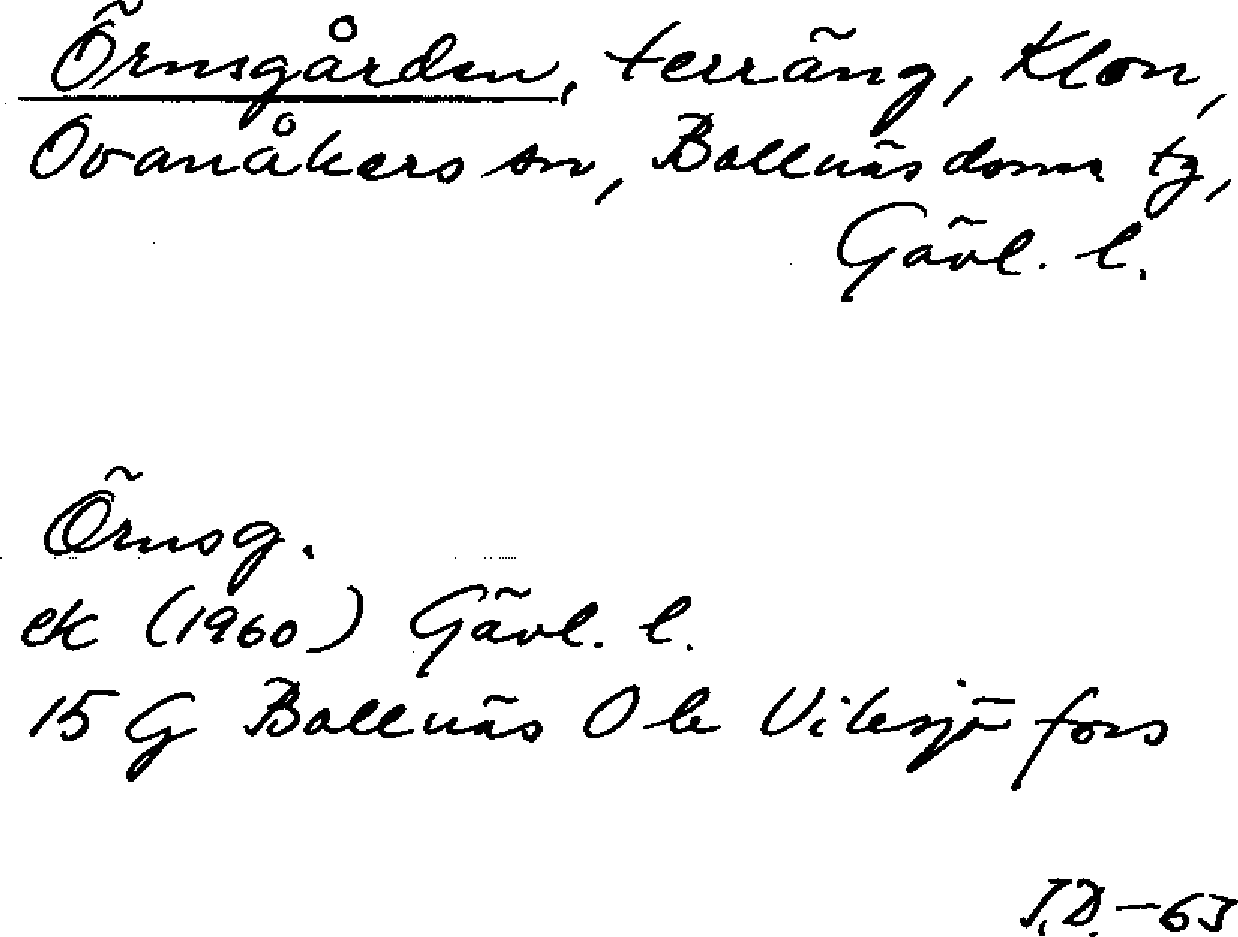 Örnsgården, terräng, Klon,
Ovanåkers sn, Bollnäs doms tg,
Gävl. l.
Örnsg.
ek (1960) Gävl. l.
15 G Bollnäs 0 b Viksjöfors
J.D.-63